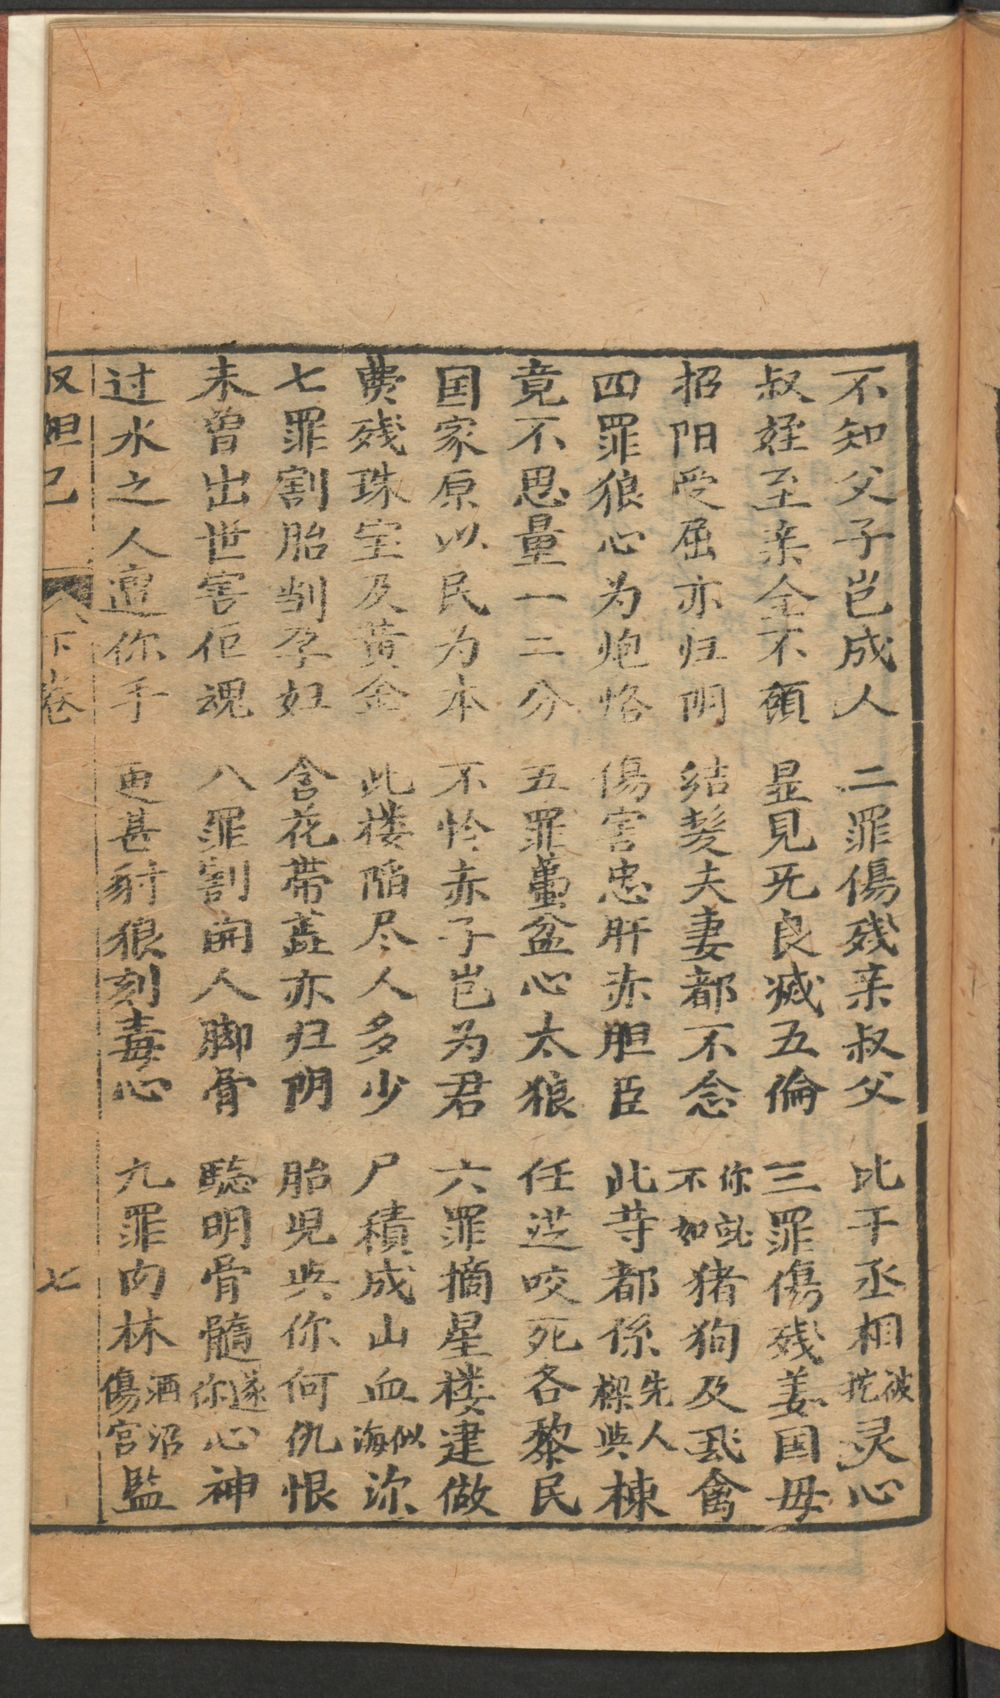 不知父子岂成人 二罪傷残亲叔父 比干丞相被挖灵心
叔姪至亲全不顧 显見死良滅五倫 三罪傷残姜国母
招阳受屈亦归阴 结髮夫妻都不念 你就不如猪狗及飛禽
四罪狼心为炮烙 傷害忠肝赤胆臣 此䓁都係先人樑与棟
竟不思量一二分 五罪蠆盆心太狼 任逆咬死各黎民
国家原以民为本 不怜赤子岂为君 六罪摘星楼建做
费残珠宝及黃金 此楼陷尽人多少 尸積成山血似海深
七罪割胎剖孕妇 含花带蕋亦归阴 胎児与你何仇恨
未曾出世害佢魂 八罪割開人脚骨 聪明骨髓遂你心神
过水之人遭你手 更甚豺狼刻毒心 九罪肉林酒沼傷宫監
収妲己 下卷 七